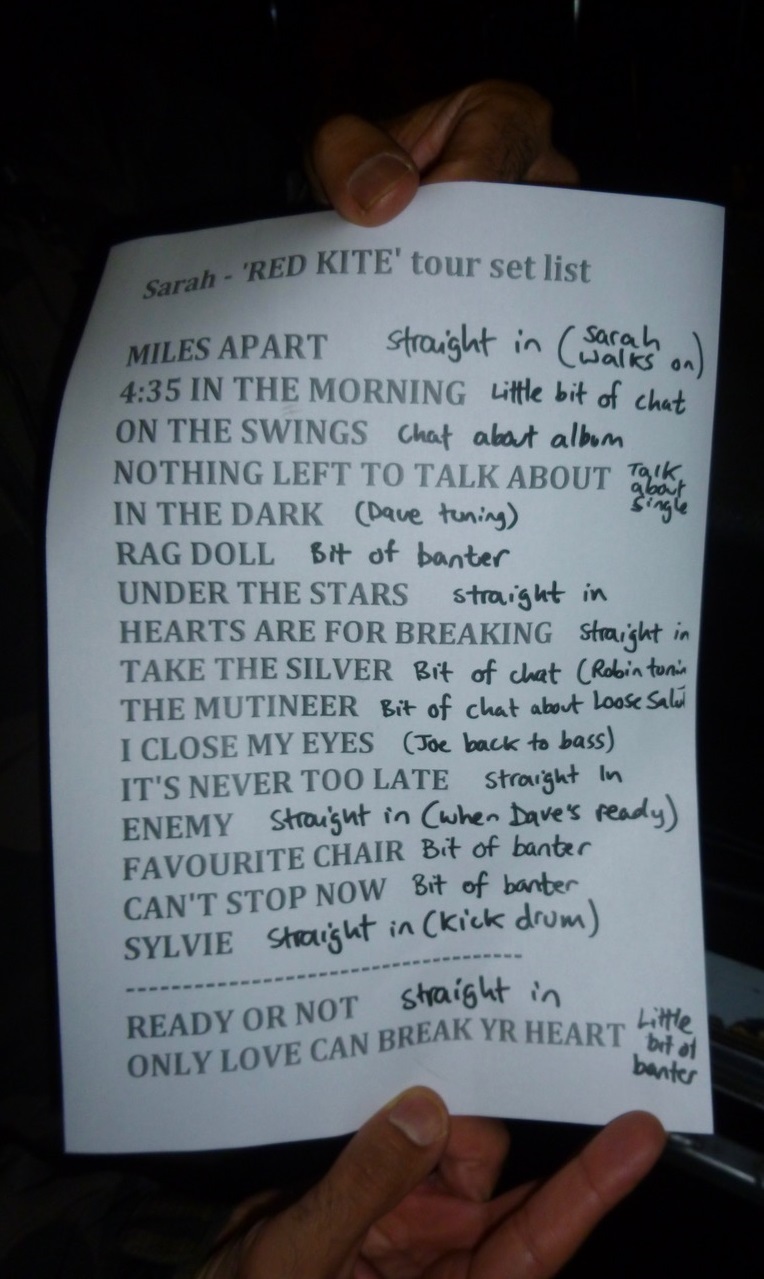 Sarah - 'RED KITE' tour set list
MILES APART straight in (Sarah walks on)
4:35 IN THE MORNING Little bit of chat
ON THE SWINGS Chat about album
NOTHING LEFT TO TALK ABOUT Talk about single
IN THE DARK (Dave tuning)
RAG DOLL Bit of banter
UNDER THE STARS straight in
HEARTS ARE FOR BREAKING straight in
TAKE THE SILVER Bit of chat (Robin tunin
THE MUTINEER Bit of chat about Loose Salu
I CLOSE MY EYES (Joe back to bass)
IT'S NEVER TOO LATE straight In
ENEMY Straight in (when Dave's ready)
FAVOURITE CHAIR Bit of banter
CAN'T STOP NOW Bit of banter
SYLVIE Straight in (kick drum)
--------------------------------------------
READY OR NOT straight in
ONLY LOVE CAN BREAK YR HEART Little bit of banter